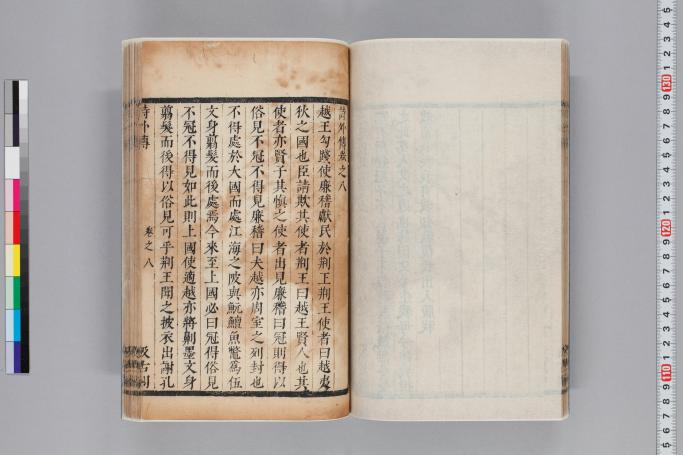 詩外傳卷之八
越王勾踐使廉稽獻民於荆王荆王使者曰越夷
狄之國也臣請欺其使者荆王曰越王賢人也其
使者亦賢子其慎之使者出見廉稽曰冠則得以
俗見不冠不得見廉稽曰夫越亦周室之列封也
不得處於大國而處江海之陂與魭鱣魚鼈爲伍
文身翦髮而後處焉今來至上國必曰冠得俗見
不冠不得見如此則上國使適越亦將劓墨文身
翦髮而後得以俗見可乎荆王聞之披衣出謝孔
詩外傳 卷之八 汲古閣